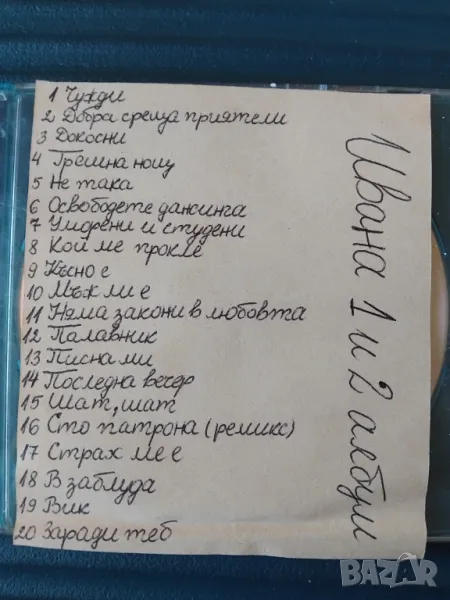 1 Чужди
2 Добра среща приятели
3 Докосни
4 Грешна нощ
5 Не така
6 Освободете дансинга
7 Уморени и студени
8 Кой ме прокле
9 Късно е
10 Мъж ми е
11 Няма закони в любовта
12 Палавник
13 Писна ми
14 Последна вечер
15 Шат, шат
16 Сто патрона (ремикс)
17 Страх ме е
18 В заблуда
19 Вик
20 Заради теб
Ивана 1 и 2 албум
BAZAR